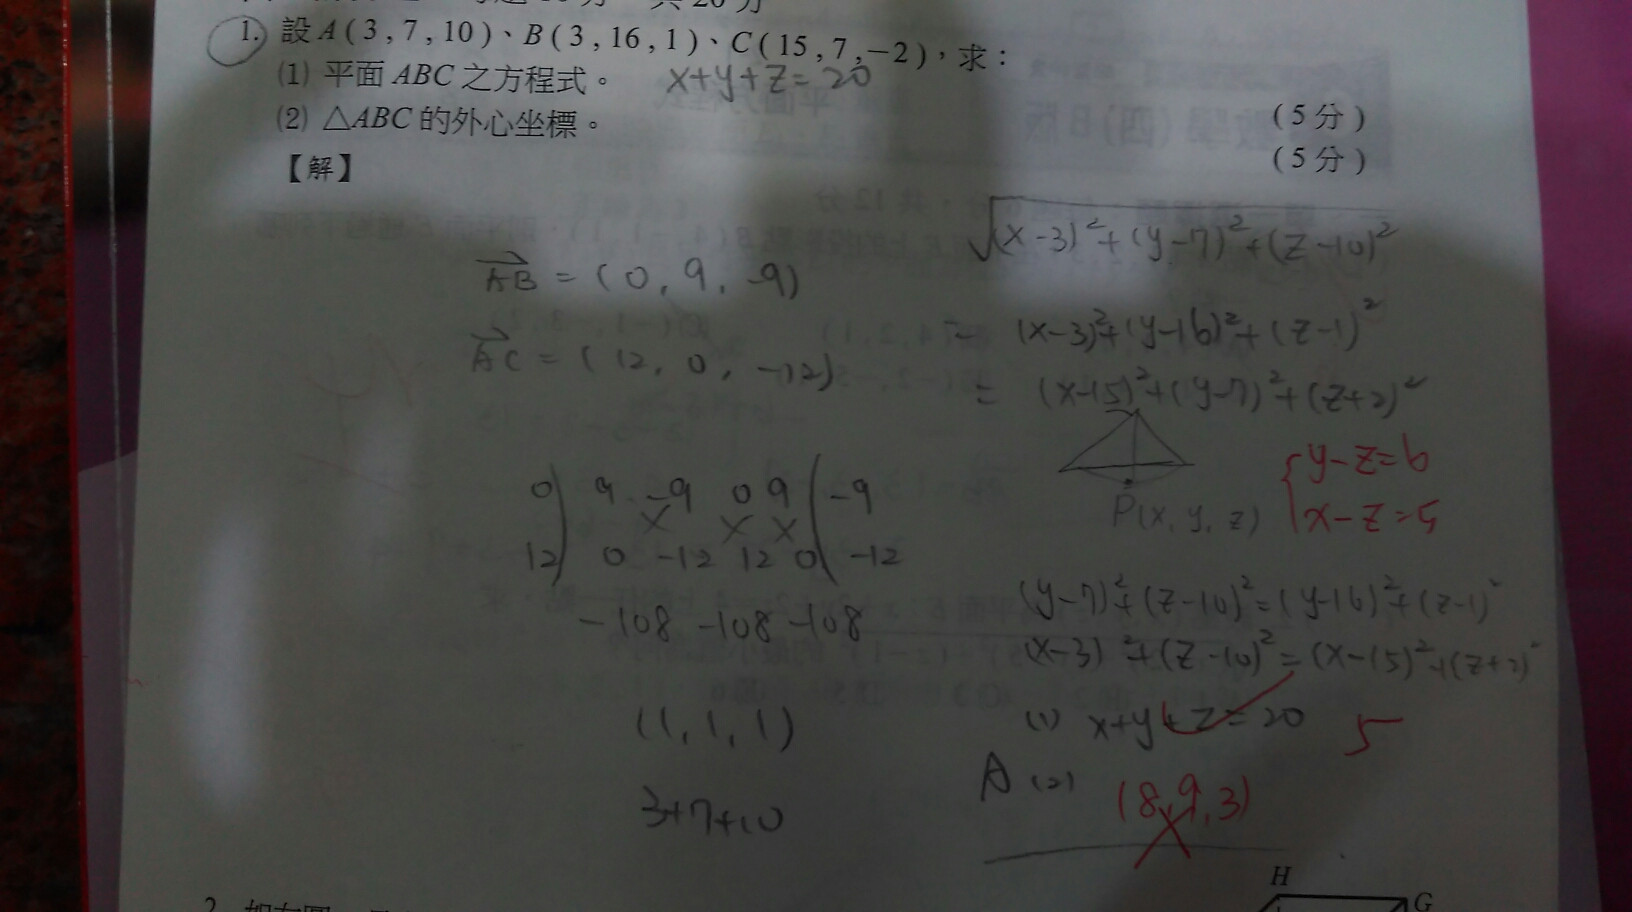 1. 設 A ( 3 , 7 , 10 )、B ( 3 , 16 , 1 )、C ( 15 , 7 , −2 )，求：
(1) 平面 ABC 之方程式。 x+y+z=20
(5分)
(2) △ABC 的外心坐標。
(5分)
【解】
√(x-3)²+(y-7)²+(z-10)²
AB = (0, 9, -9)
= (x-3)²+(y-16)²+(z-1)²
AC = (12, 0, -12)
= (x-15)²+(y-7)²+(z+2)²
y-z=6
x-z=5
P(x, y, z)
0 | 9 -9 0 9 | -9
12 | 0 -12 12 0 | -12
-108 -108 -108
(y-7)²+(z-10)²=(y-16)²+(z-1)²
(x-3)²+(z-10)²=(x-15)²+(z+2)²
(1, 1, 1)
(1) x+y+z=20 5
3+7+10
A (2) (8,9,3)
H
G
2.